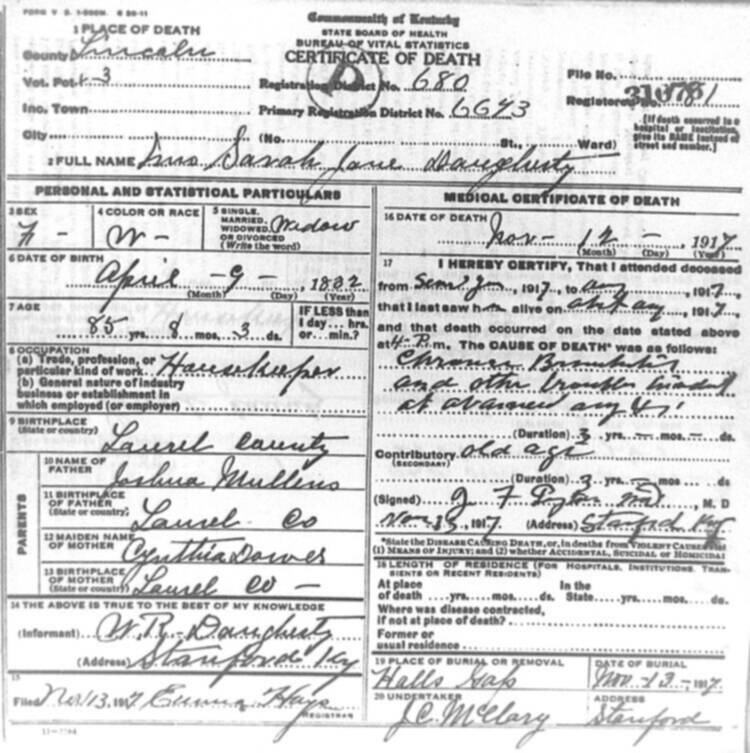 FORM V. S. 1-500M. 6 26-11
Commonwealth of Kentucky
STATE BOARD OF HEALTH
BUREAU OF VITAL STATISTICS
CERTIFICATE OF DEATH
1 PLACE OF DEATH
County Lincoln
Vot. Pct. 3
Registration District No. 680
File No.
Inc. Town
Primary Registration District No. 6643
Registered No. 31078
City
(No. St., Ward)
[If death occurred in a hospital or institution, give its NAME instead of street and number.]
2 FULL NAME Mrs Sarah Jane Daugherty
PERSONAL AND STATISTICAL PARTICULARS
3 SEX
F-
4 COLOR OR RACE
W-
5 SINGLE, MARRIED, WIDOWED, OR DIVORCED (Write the word)
Widow
6 DATE OF BIRTH
April - 9 - 1832
(Month) (Day) (Year)
7 AGE
85 yrs. 8 mos. 3 ds.
IF LESS than 1 day... hrs. or... min.?
8 OCCUPATION
(a) Trade, profession, or particular kind of work Housekeeper
(b) General nature of industry business or establishment in which employed (or employer)
9 BIRTHPLACE
(State or country) Laurel County
PARENTS
10 NAME OF FATHER Joshua Mullins
11 BIRTHPLACE OF FATHER (State or country) Laurel Co
12 MAIDEN NAME OF MOTHER Cynthia
13 BIRTHPLACE OF MOTHER (State or country) Laurel Co -
14 THE ABOVE IS TRUE TO THE BEST OF MY KNOWLEDGE
(Informant) W. R. Daugherty
(Address) Stanford Ky
15
Filed Nov 13, 1917 Emma Hays
REGISTRAR
MEDICAL CERTIFICATE OF DEATH
16 DATE OF DEATH
Nov - 12 - , 1917
(Month) (Day) (Year)
17 I HEREBY CERTIFY, That I attended deceased
from , 1917, to , 1917,
that I last saw h alive on , 1917,
and that death occurred on the date stated above
at 4 P. m. The CAUSE OF DEATH* was as follows:
Chronic Bronchitis
and other troubles
at advanced
(Duration) 3 yrs. — mos. — ds.
Contributory old age
(SECONDARY)
(Duration) 3 yrs. mos. ds
(Signed) J F M D, M. D
Nov 13, 1917 (Address) Stanford Ky
*State the DISEASE CAUSING DEATH, or, in deaths from VIOLENT CAUSES state (1) MEANS OF INJURY; and (2) whether ACCIDENTAL, SUICIDAL OR HOMICIDAL
18 LENGTH OF RESIDENCE (FOR HOSPITALS, INSTITUTIONS, TRANSIENTS OR RECENT RESIDENTS)
At place of death yrs. mos. ds.
In the State yrs. mos. ds.
Where was disease contracted, if not at place of death?
Former or usual residence
19 PLACE OF BURIAL OR REMOVAL
Halls Gap
DATE OF BURIAL
Nov. 13 - 1917
20 UNDERTAKER
J. C. McClary
ADDRESS
Stanford